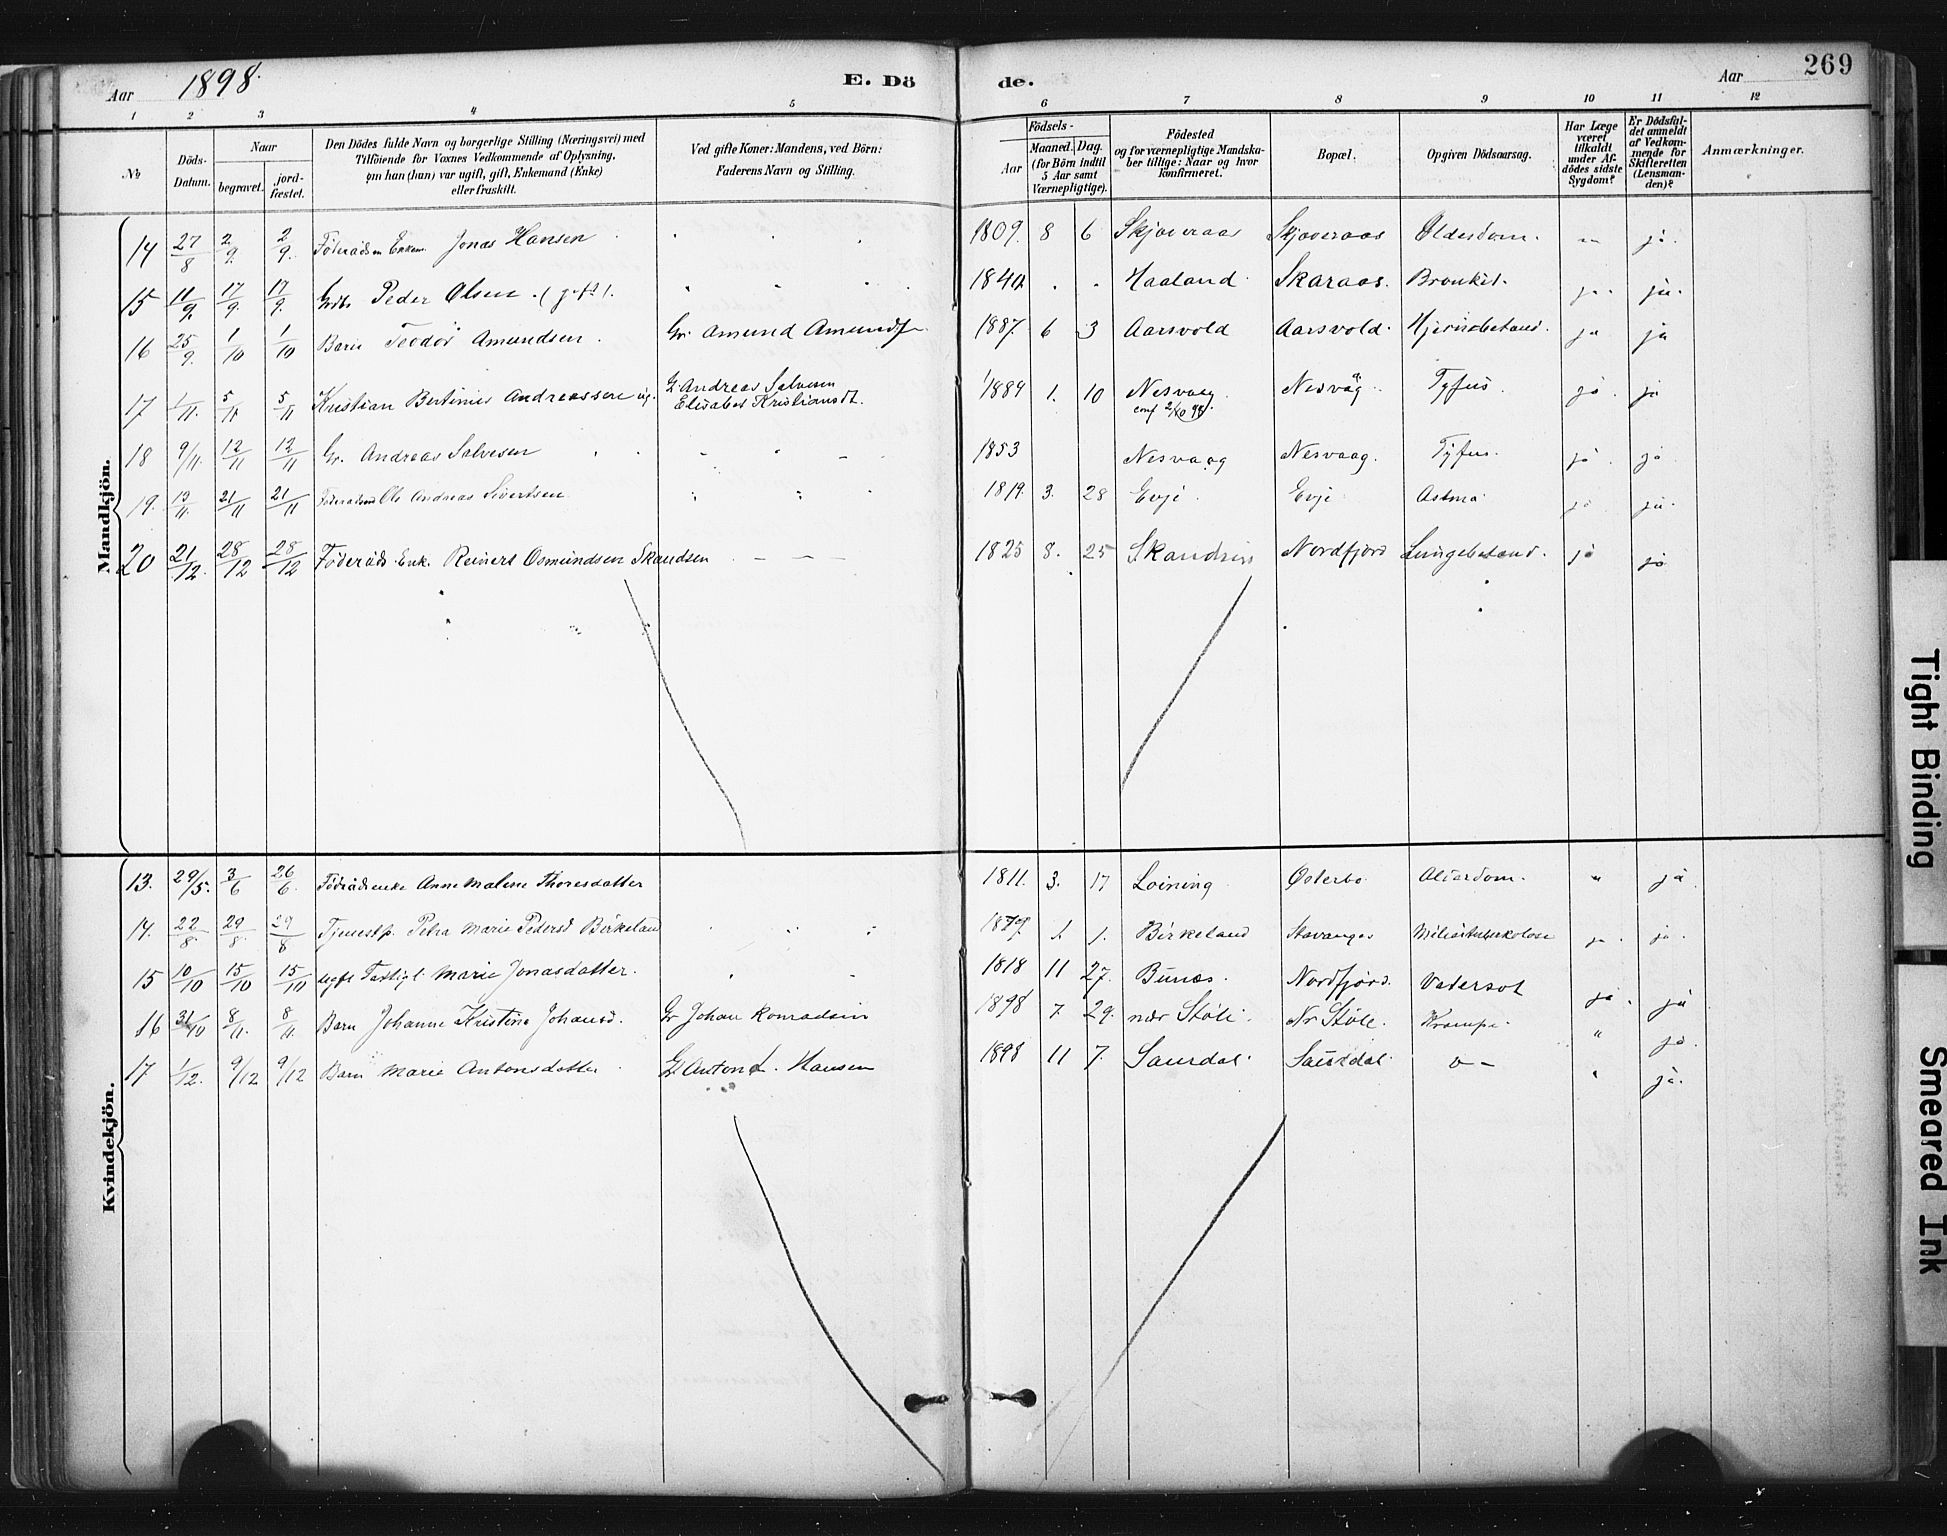 Aar 1898. E. Dö de. Aar 269
1 2 3 4 5 6 7 8 9 10 11 12
No
Döds-Datum.
Naar
begravet.
jord-fæstet.
Den Dödes fulde Navn og borgerlige Stilling (Næringsvei) med
Tilföiende for Voxnes Vedkommende af Oplysning,
om han (hun) var ugift, gift, Enkemand (Enke)
eller fraskilt.
Ved gifte Koner: Mandens, ved Börn:
Faderens Navn og Stilling.
Födsels-
Aar
Maaned. Dag.
(for Börn indtil
5 Aar samt
Værnepligtige).
Födested
og for værnepligtige Mandska-
ber tillige: Naar og hvor
konfirmeret.
Bopæl.
Opgiven Dödsaarsag.
Har Læge
været
tilkaldt
under Af-
dödes sidste
Sygdom?
Er Dödsfal-
det anmeldt
af Vedkom-
mende for
Skifteretten
(Lensman-
den)?
Anmærkninger.
Mandkjön.
14 27/8 2/9 2/9 Föderådsm Enkem. Jonas Hansen 1809. 8 6 Skjæveraas Skjæveraas Olderdom. " ja.
15 11/9 17/9 17/9. Grdbr Peder Olsen. (gift). 1840 Haaland Skaraas. Bronkit. ja. ja.
16 25/9. 1/10 1/10 Barn Teodor Amundsen. Gr. Amund Amunds. 1887. 6 3 Aarsvold Aarsvold. Hjernebetænd. ja ja
17 1/11. 5/11 5/11 Kristian Bertinius Andreassen ug. G. Andreas Salvesen 1884 1. 10 Nesvaag Nesvåg. Tyfus. ja. ja
Elisabet Kristiansdt. conf 2/10 98.
18 9/11. 12/11 12/11 Gr. Andreas Salvesen 1853 Nesvaag Nesvaag. Tyfus. ja. ja
19. 13/11. 21/11 21/11 Föderådsm Ole Andreas Sivertsen. 1819. 3. 28 Evje Evje Astma ja ja.
20 21/12. 28/12 28/12 Föderåds Enk. Reinert Osmundsen Skandsen — — — 1825 8. 25 Skandsen Nordfjord Lungebetænd. ja ja
Kvindekjön.
13. 29/5. 3/6 26/6. Föderådsenke Anne Malene Thoresdatter 1811. 3. 17 Loining Österbö Alderdom. " ja
14. 22/8. 29/8. 29/8 Tjenestp. Petra Marie Pedersd Birkeland 1879 1. 1. Birkeland Stavanger Miliærtuberkolose ja. ja.
15 10/10 15/10 15/10 ugift Fattigl. Marie Jonasdatter. 1818 11 27. Bunes. Nordfjord. Vatersot ja. ja
16 31/10 8/11. 8/11. Barn Johanne Kristine Johansd. Gr Johan Konradsen 1898 7. 29. nær Støle. Nr Støle. Krampe. " ja.
17 1/12. 9/12 9/12 Barn Marie Antonsdatter G Anton L. Hansen 1898 11 7. Saurdal Saurdal o — " ja.
Tight Binding
Smeared Ink